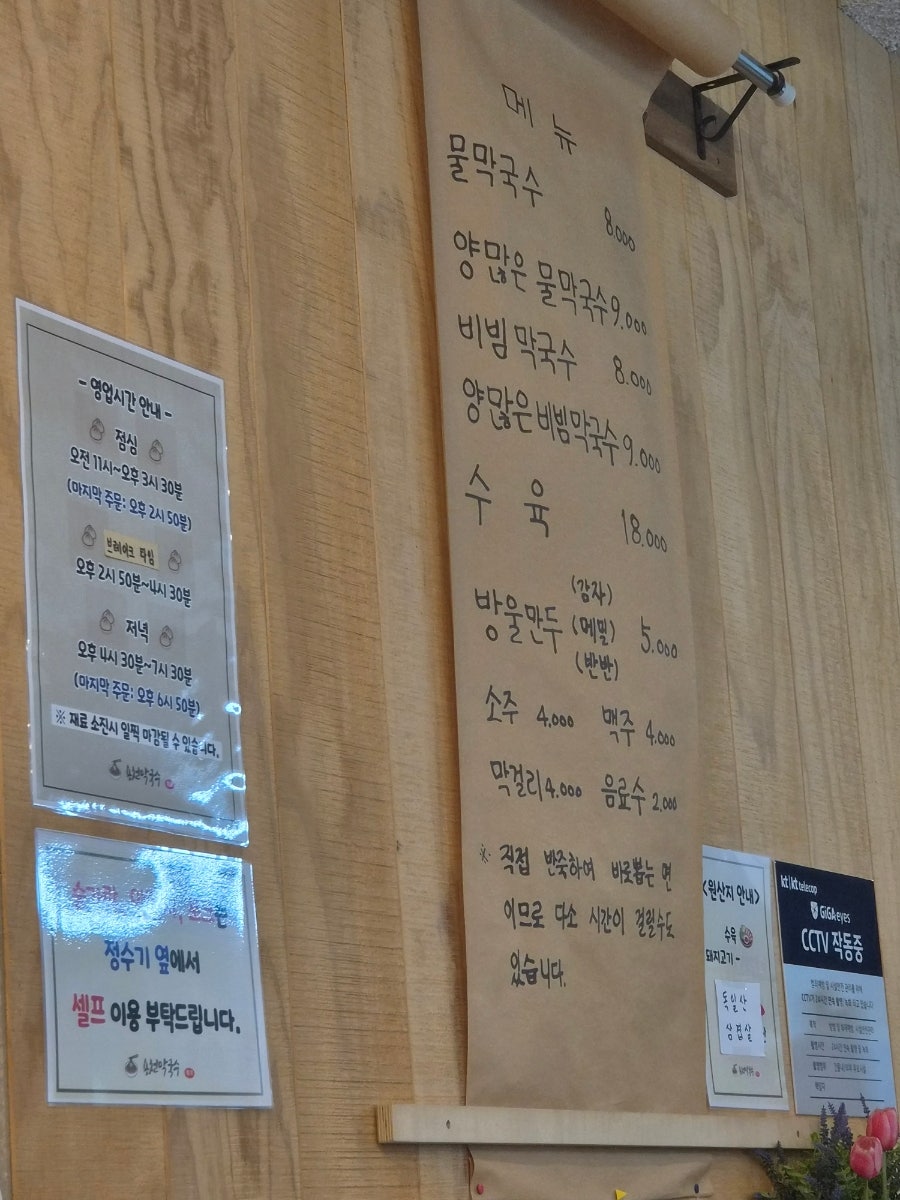 메뉴
물막국수 8.000
양많은 물막국수 9.000
비빔 막국수 8.000
양많은 비빔막국수 9.000
수육 18.000
(감자)
방울만두 (메밀) 5.000
(반반)
소주 4.000 맥주 4.000
막걸리 4.000 음료수 2.000
※ 직접 반죽하여 바로뽑는 면
이므로 다소 시간이 걸릴수도
있습니다.
- 영업시간 안내 -
점심
오전 11시~오후 3시 30분
(마지막 주문: 오후 2시 50분)
브레이크 타임
오후 2시 50분~4시 30분
저녁
오후 4시 30분~7시 30분
(마지막 주문: 오후 6시 50분)
※ 재료 소진시 일찍 마감될 수 있습니다.
막국수
정수기 옆에서
셀프 이용 부탁드립니다.
막국수
<원산지 안내>
수육
돼지고기 -
독일산
삼겹살
kt | kt telecop
GiGAeyes
CCTV 작동중